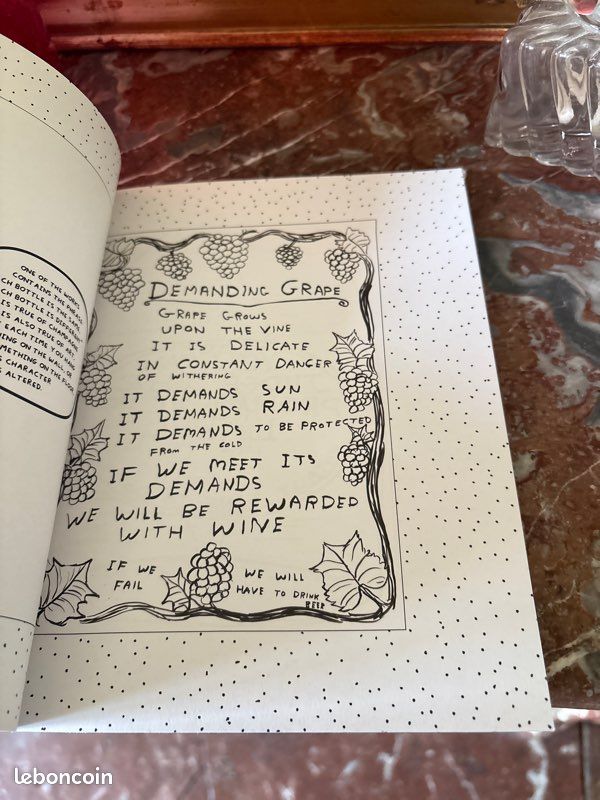 ONE OF THE WORKS
CONTAINS THE PHRASE
CH BOTTLE IS THE SAME
CH BOTTLE IS DIFFERENT
IS TRUE OF CHAMPAGNE
IS ALSO TRUE OF ART.
EACH TIME YOU
HING ON THE WALL OR
METHING ON THE FLOOR
S CHARACTER
S ALTERED
DEMANDING GRAPE
GRAPE GROWS
UPON THE VINE
IT IS DELICATE
IN CONSTANT DANGER
OF WITHERING
IT DEMANDS SUN
IT DEMANDS RAIN
IT DEMANDS TO BE PROTECTED
FROM THE COLD
IF WE MEET ITS
DEMANDS
WE WILL BE REWARDED
WITH WINE
IF WE
FAIL
WE WILL
HAVE TO DRINK
BEER
leboncoin